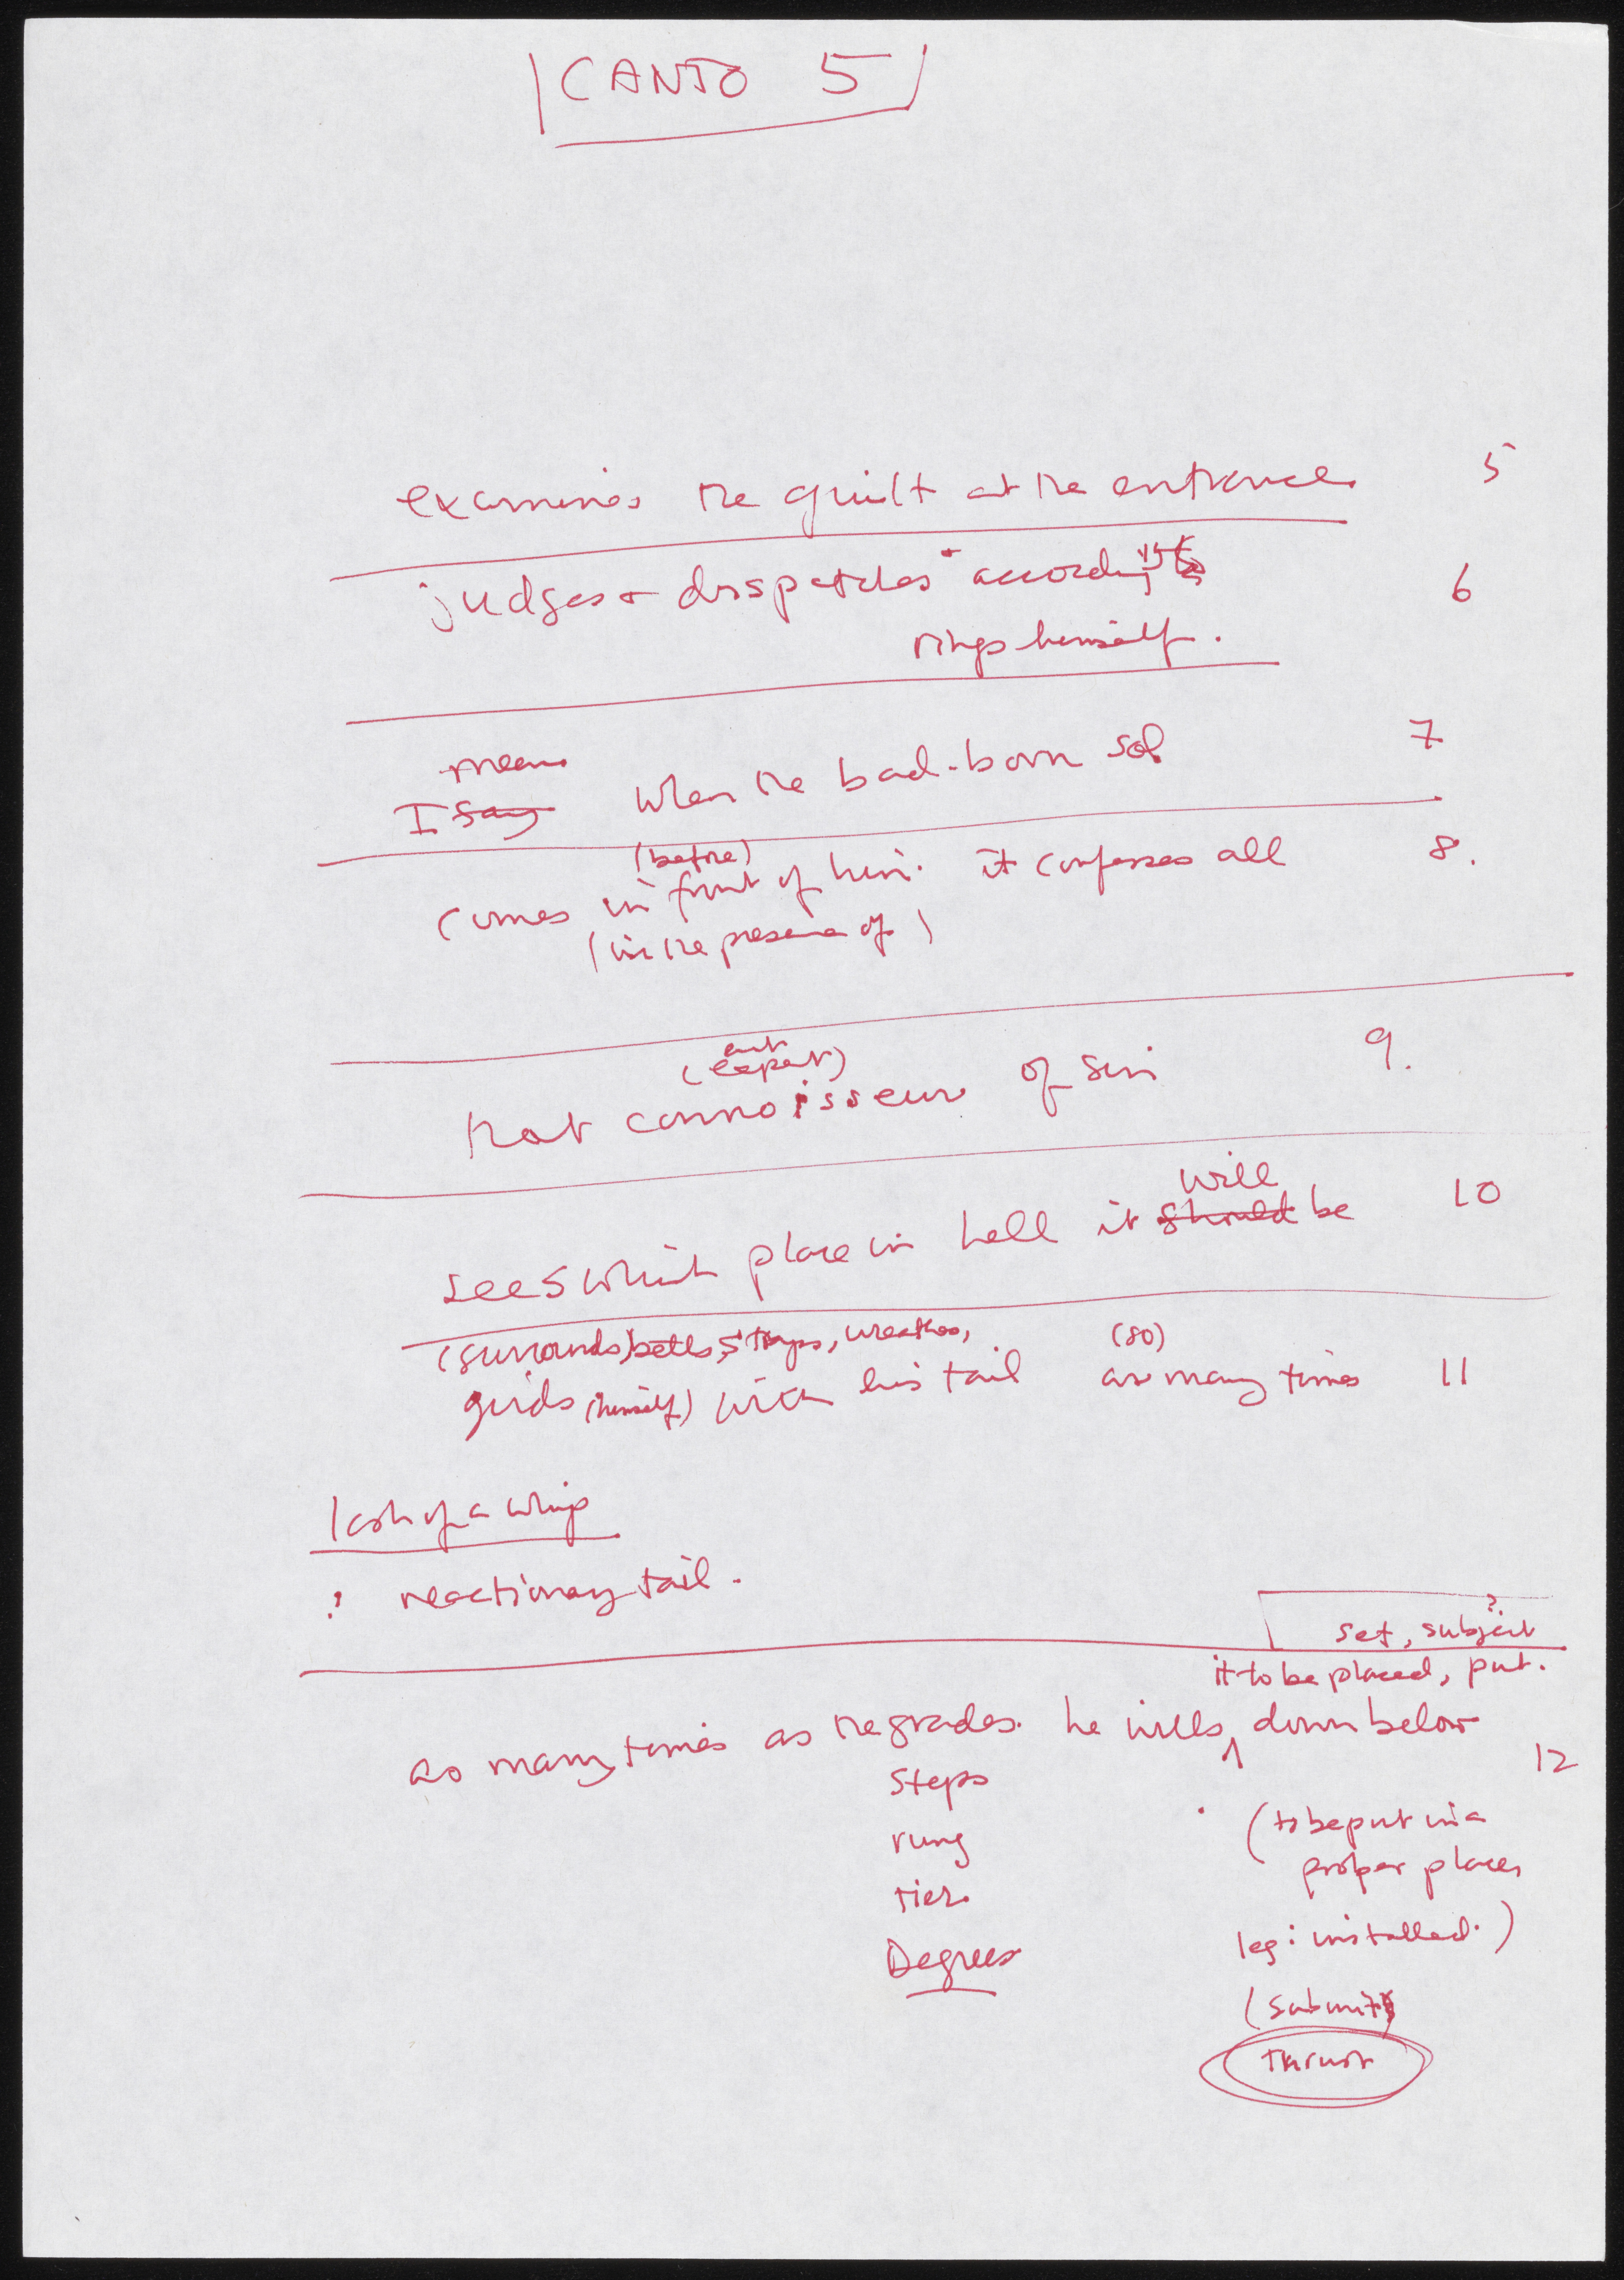 CANTO 5
examines the guilt at the entrance 5
judges + dispatches according
rings himself. 6
mean
I say when the bad-born sol 7
(before)
comes in front of him. it confesses all 8.
(in the presence of)
(expert)
that connoisseur of sin 9.
will
sees which place in hell it should be 10
(surrounds) belts, straps, wreathes, (so)
girds (himself) with his tail as many times 11
lash of a whip
? reactionary tail.
set, subject?
it to be placed, put.
as many times as the grades. he wills down below 12
steps
rung
tier.
Degrees
(to be put in a
proper place,
leg: installed.)
(submit)
Thrust